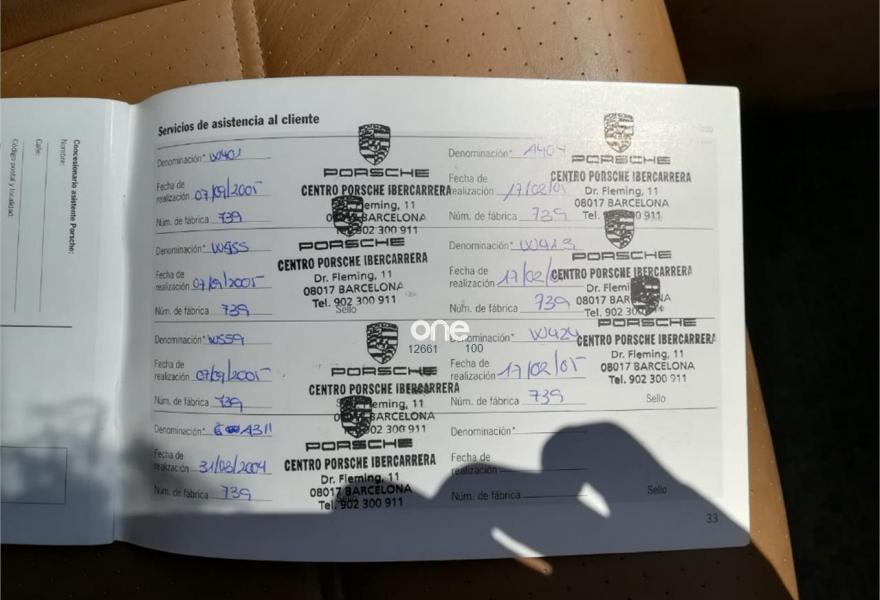 Concesionario asistente Porsche:
Nombre:
Calle:
Código postal y localidad:
Servicios de asistencia al cliente
Denominación* W401
Fecha de
realización 07/09/2005
Núm. de fábrica 739
PORSCHE
CENTRO PORSCHE IBERCARRERA
Fleming, 11
BARCELONA
902 300 911
Denominación*
Fecha de
realización 07/09/2005
Núm. de fábrica 739
PORSCHE
CENTRO PORSCHE IBERCARRERA
Dr. Fleming, 11
08017 BARCELONA
Tel. 902 300 911
Sello
Denominación*
Fecha de
realización 07/09/2005
Núm. de fábrica 739
PORSCHE
CENTRO PORSCHE IBERCARRERA
Fleming, 11
BARCELONA
902 300 911
Denominación* A311
Fecha de
realización 31/03/2004
Núm. de fábrica 739
PORSCHE
CENTRO PORSCHE IBERCARRERA
Dr. Fleming, 11
08017 BARCELONA
Tel. 902 300 911
Denominación* A404
Fecha de
realización 17/02/05
Núm. de fábrica 739
PORSCHE
CENTRO PORSCHE IBERCARRERA
Dr. Fleming, 11
08017 BARCELONA
Tel. 911
Denominación* W413
Fecha de
realización 17/02/
Núm. de fábrica 739
PORSCHE
CENTRO PORSCHE IBERCARRERA
Dr. Fleming
08017
Tel. 902
Denominación* W424
Fecha de
realización 17/02/05
Núm. de fábrica 739
PORSCHE
CENTRO PORSCHE IBERCARRERA
Dr. Fleming, 11
08017 BARCELONA
Tel. 902 300 911
Sello
Denominación*
Fecha de
realización
Núm. de fábrica
Sello
33
one
12661 100